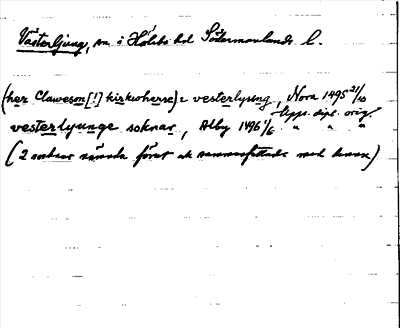 Västerljung, sn. i Hölebo hd Södermanlands l.
(her Claweson [!] kirkioherre) i vesterlyung, Nora 1495 21/10
Upps. dipl. orig.
vesterlyunge soknar, Alby 1496 1/6 " " "
(2 socknar nämnda förut ss sammanfattade med denna)